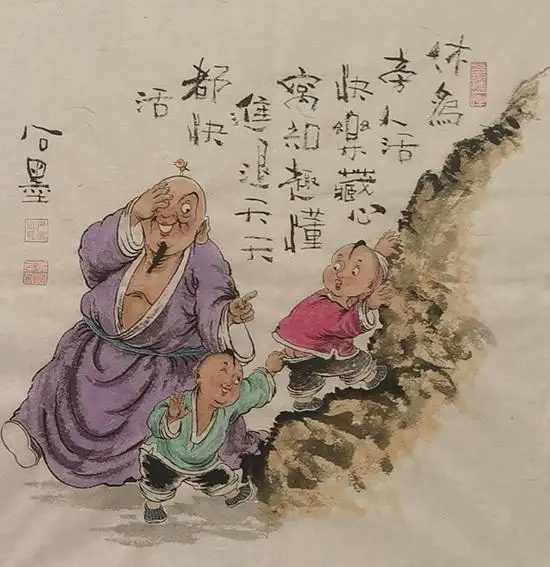 休為
旁人活
快樂藏心
窩知趣懂
進退天天
都快
活
墨